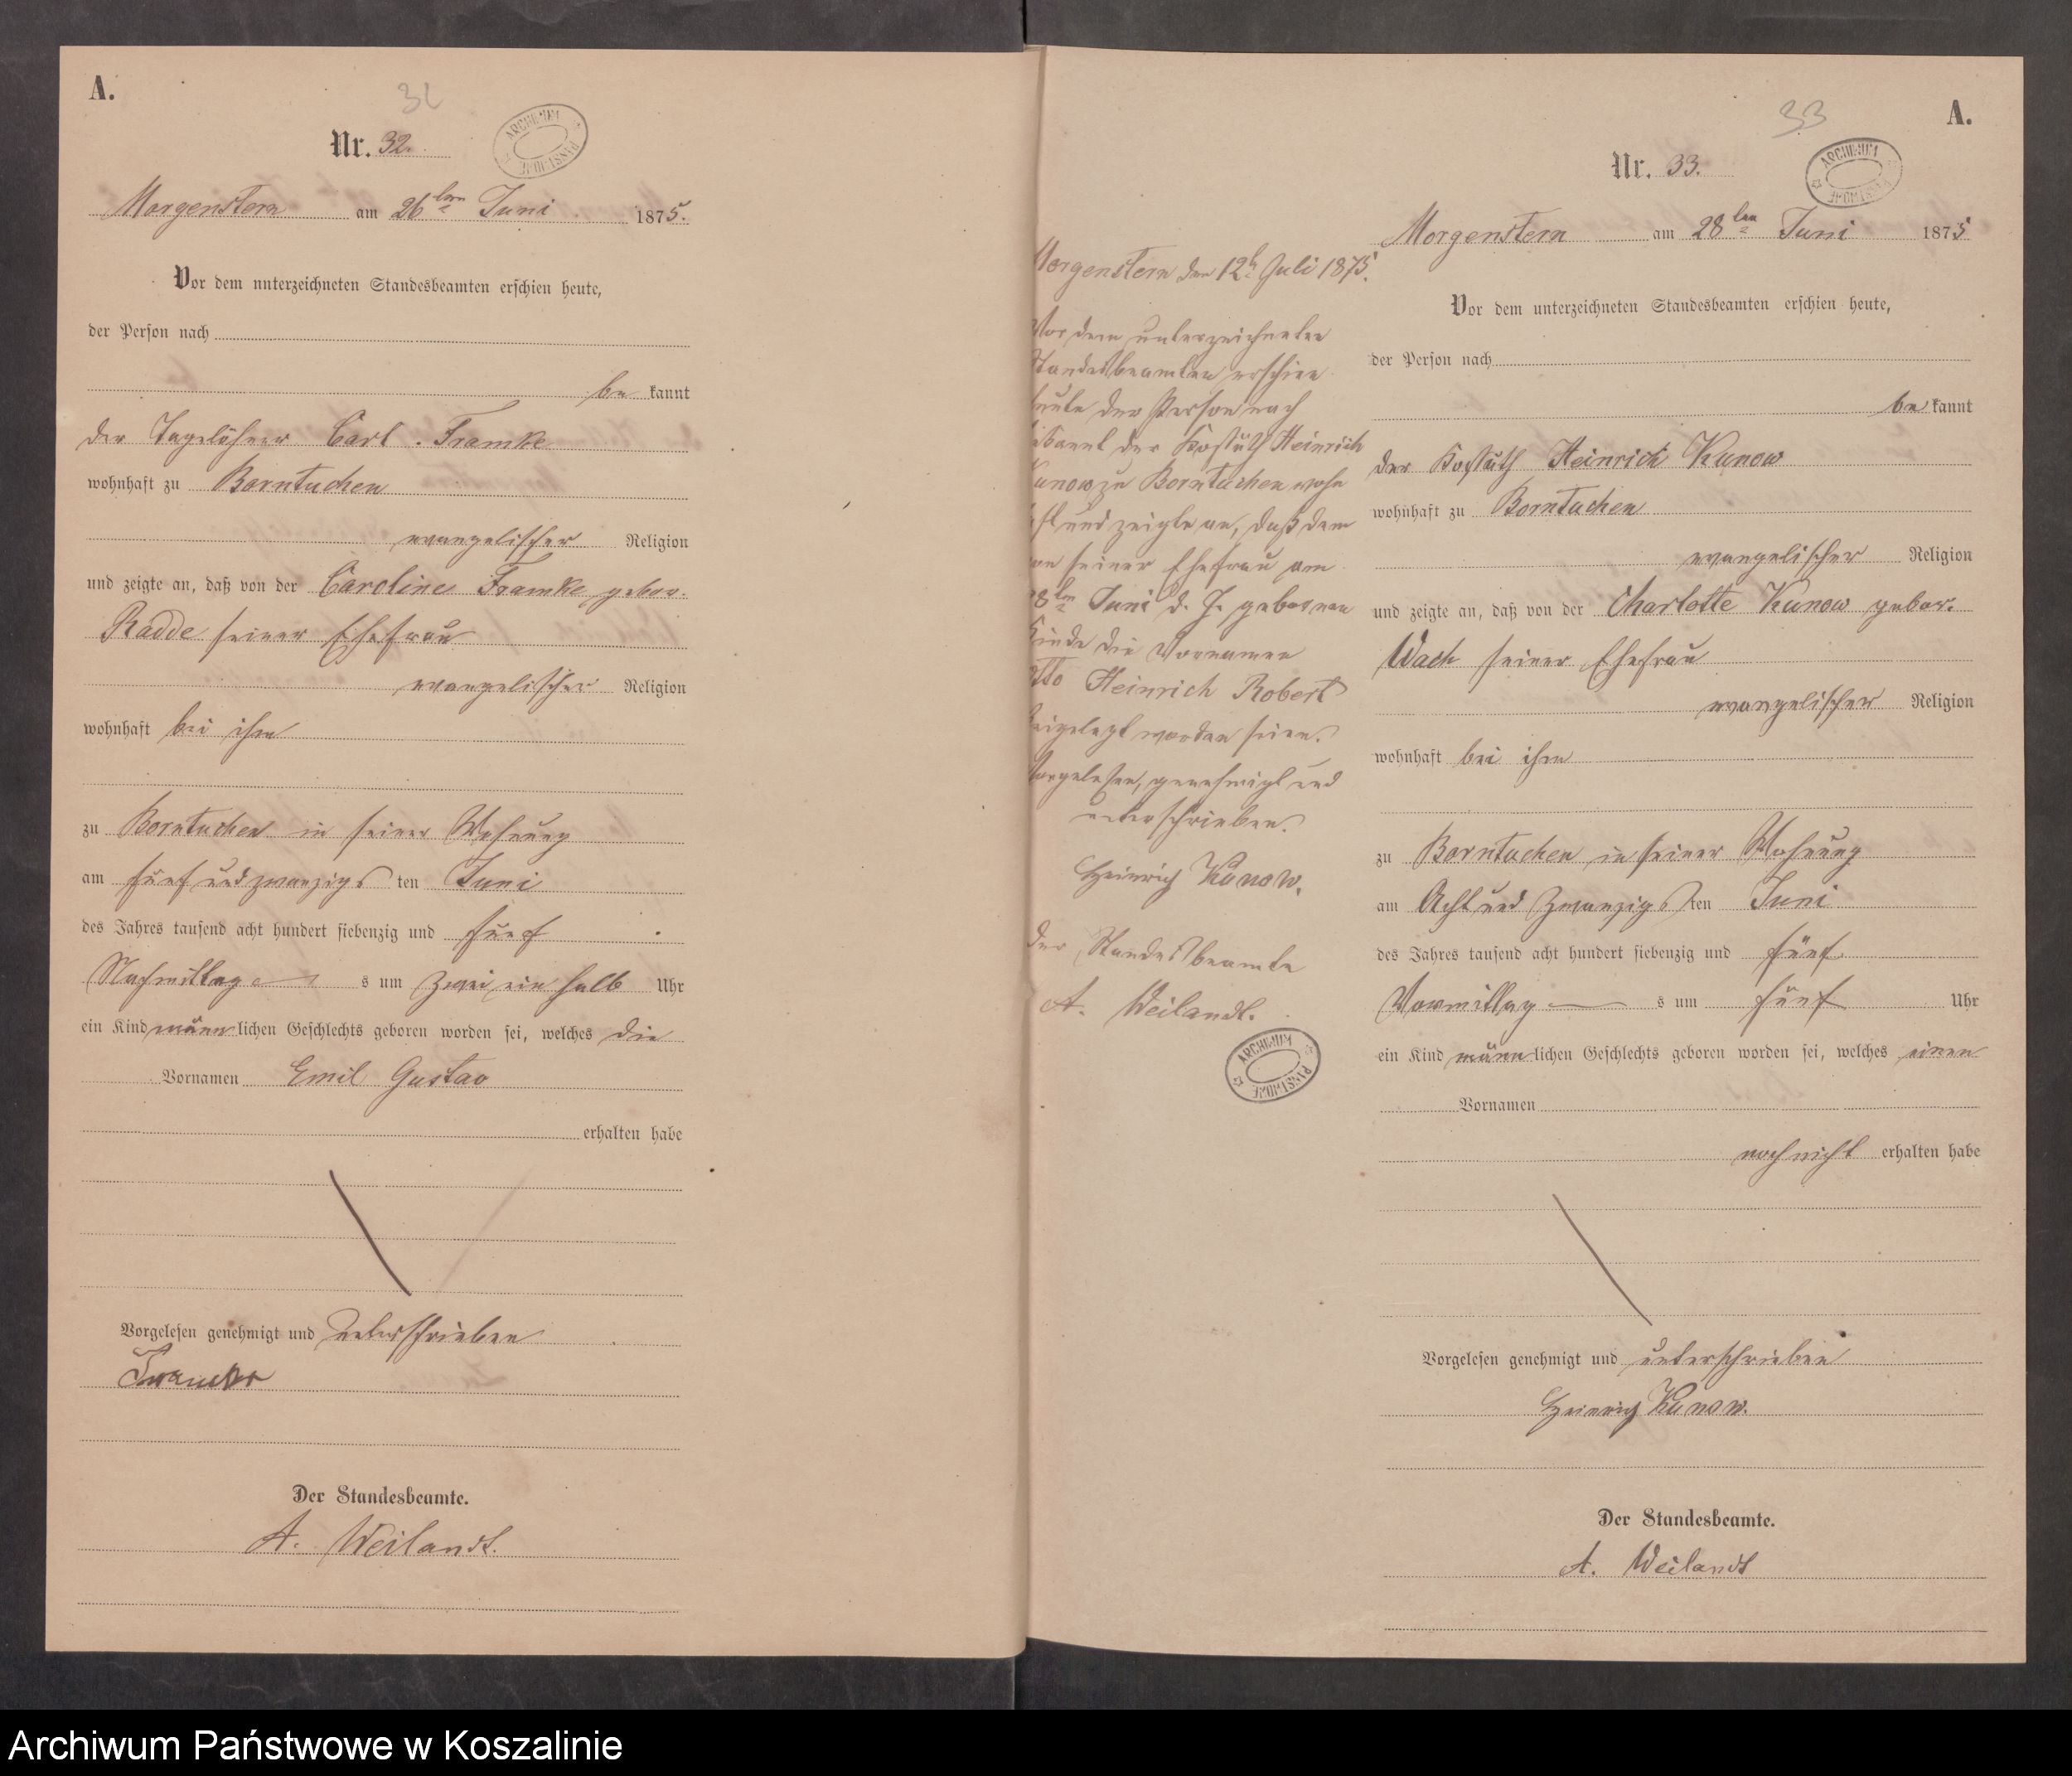 A.
32
Nr. 32.
ARCHIWUM PAŃSTWOWE
Morgenstern am 26ten Juni 1875.
Vor dem unterzeichneten Standesbeamten erschien heute,
der Person nach
be kannt
der Tagelöhner Carl Framke
wohnhaft zu Borntuchen
evangelischer Religion
und zeigte an, daß von der Caroline Framke gebor.
Radde seiner Ehefrau
evangelischer Religion
wohnhaft bei ihm
zu Borntuchen in seiner Wohnung
am fünf und zwanzigs ten Juni
des Jahres tausend acht hundert siebenzig und fünf
Nachmittag s um zwei ein halb Uhr
ein Kind männlichen Geschlechts geboren worden sei, welches die
Vornamen Emil Gustav
erhalten habe
Vorgelesen genehmigt und unterschrieben
Framke
Der Standesbeamte.
A. Weilandt.
Morgenstern den 12t Juli 1875.
Vor dem unterzeichneten
Standesbeamten erschien
heute der Person nach
bekannt der Heinrich
Kunow zu Borntuchen wohn
haft und zeigte an, daß dem
von seiner Ehefrau am
28ten Juni d. J. geborenen
Kinde die Vornamen
Otto Heinrich Robert
beigelegt worden seien.
Vorgelesen, genehmigt und
unterschrieben.
Heinrich Kunow.
Der Standesbeamte
A. Weilandt.
ARCHIWUM PAŃSTWOWE
33
A.
Nr. 33.
ARCHIWUM PAŃSTWOWE
Morgenstern am 28ten Juni 1875
Vor dem unterzeichneten Standesbeamten erschien heute,
der Person nach
be kannt
der Heinrich Kunow
wohnhaft zu Borntuchen
evangelischer Religion
und zeigte an, daß von der Charlotte Kunow gebor.
Wach seiner Ehefrau
evangelischer Religion
wohnhaft bei ihm
zu Borntuchen in seiner Wohnung
am Acht und zwanzigs ten Juni
des Jahres tausend acht hundert siebenzig und fünf
Vormittag s um fünf Uhr
ein Kind männlichen Geschlechts geboren worden sei, welches einen
Vornamen
noch nicht erhalten habe
Vorgelesen genehmigt und unterschrieben
Heinrich Kunow.
Der Standesbeamte.
A. Weilandt
Archiwum Państwowe w Koszalinie